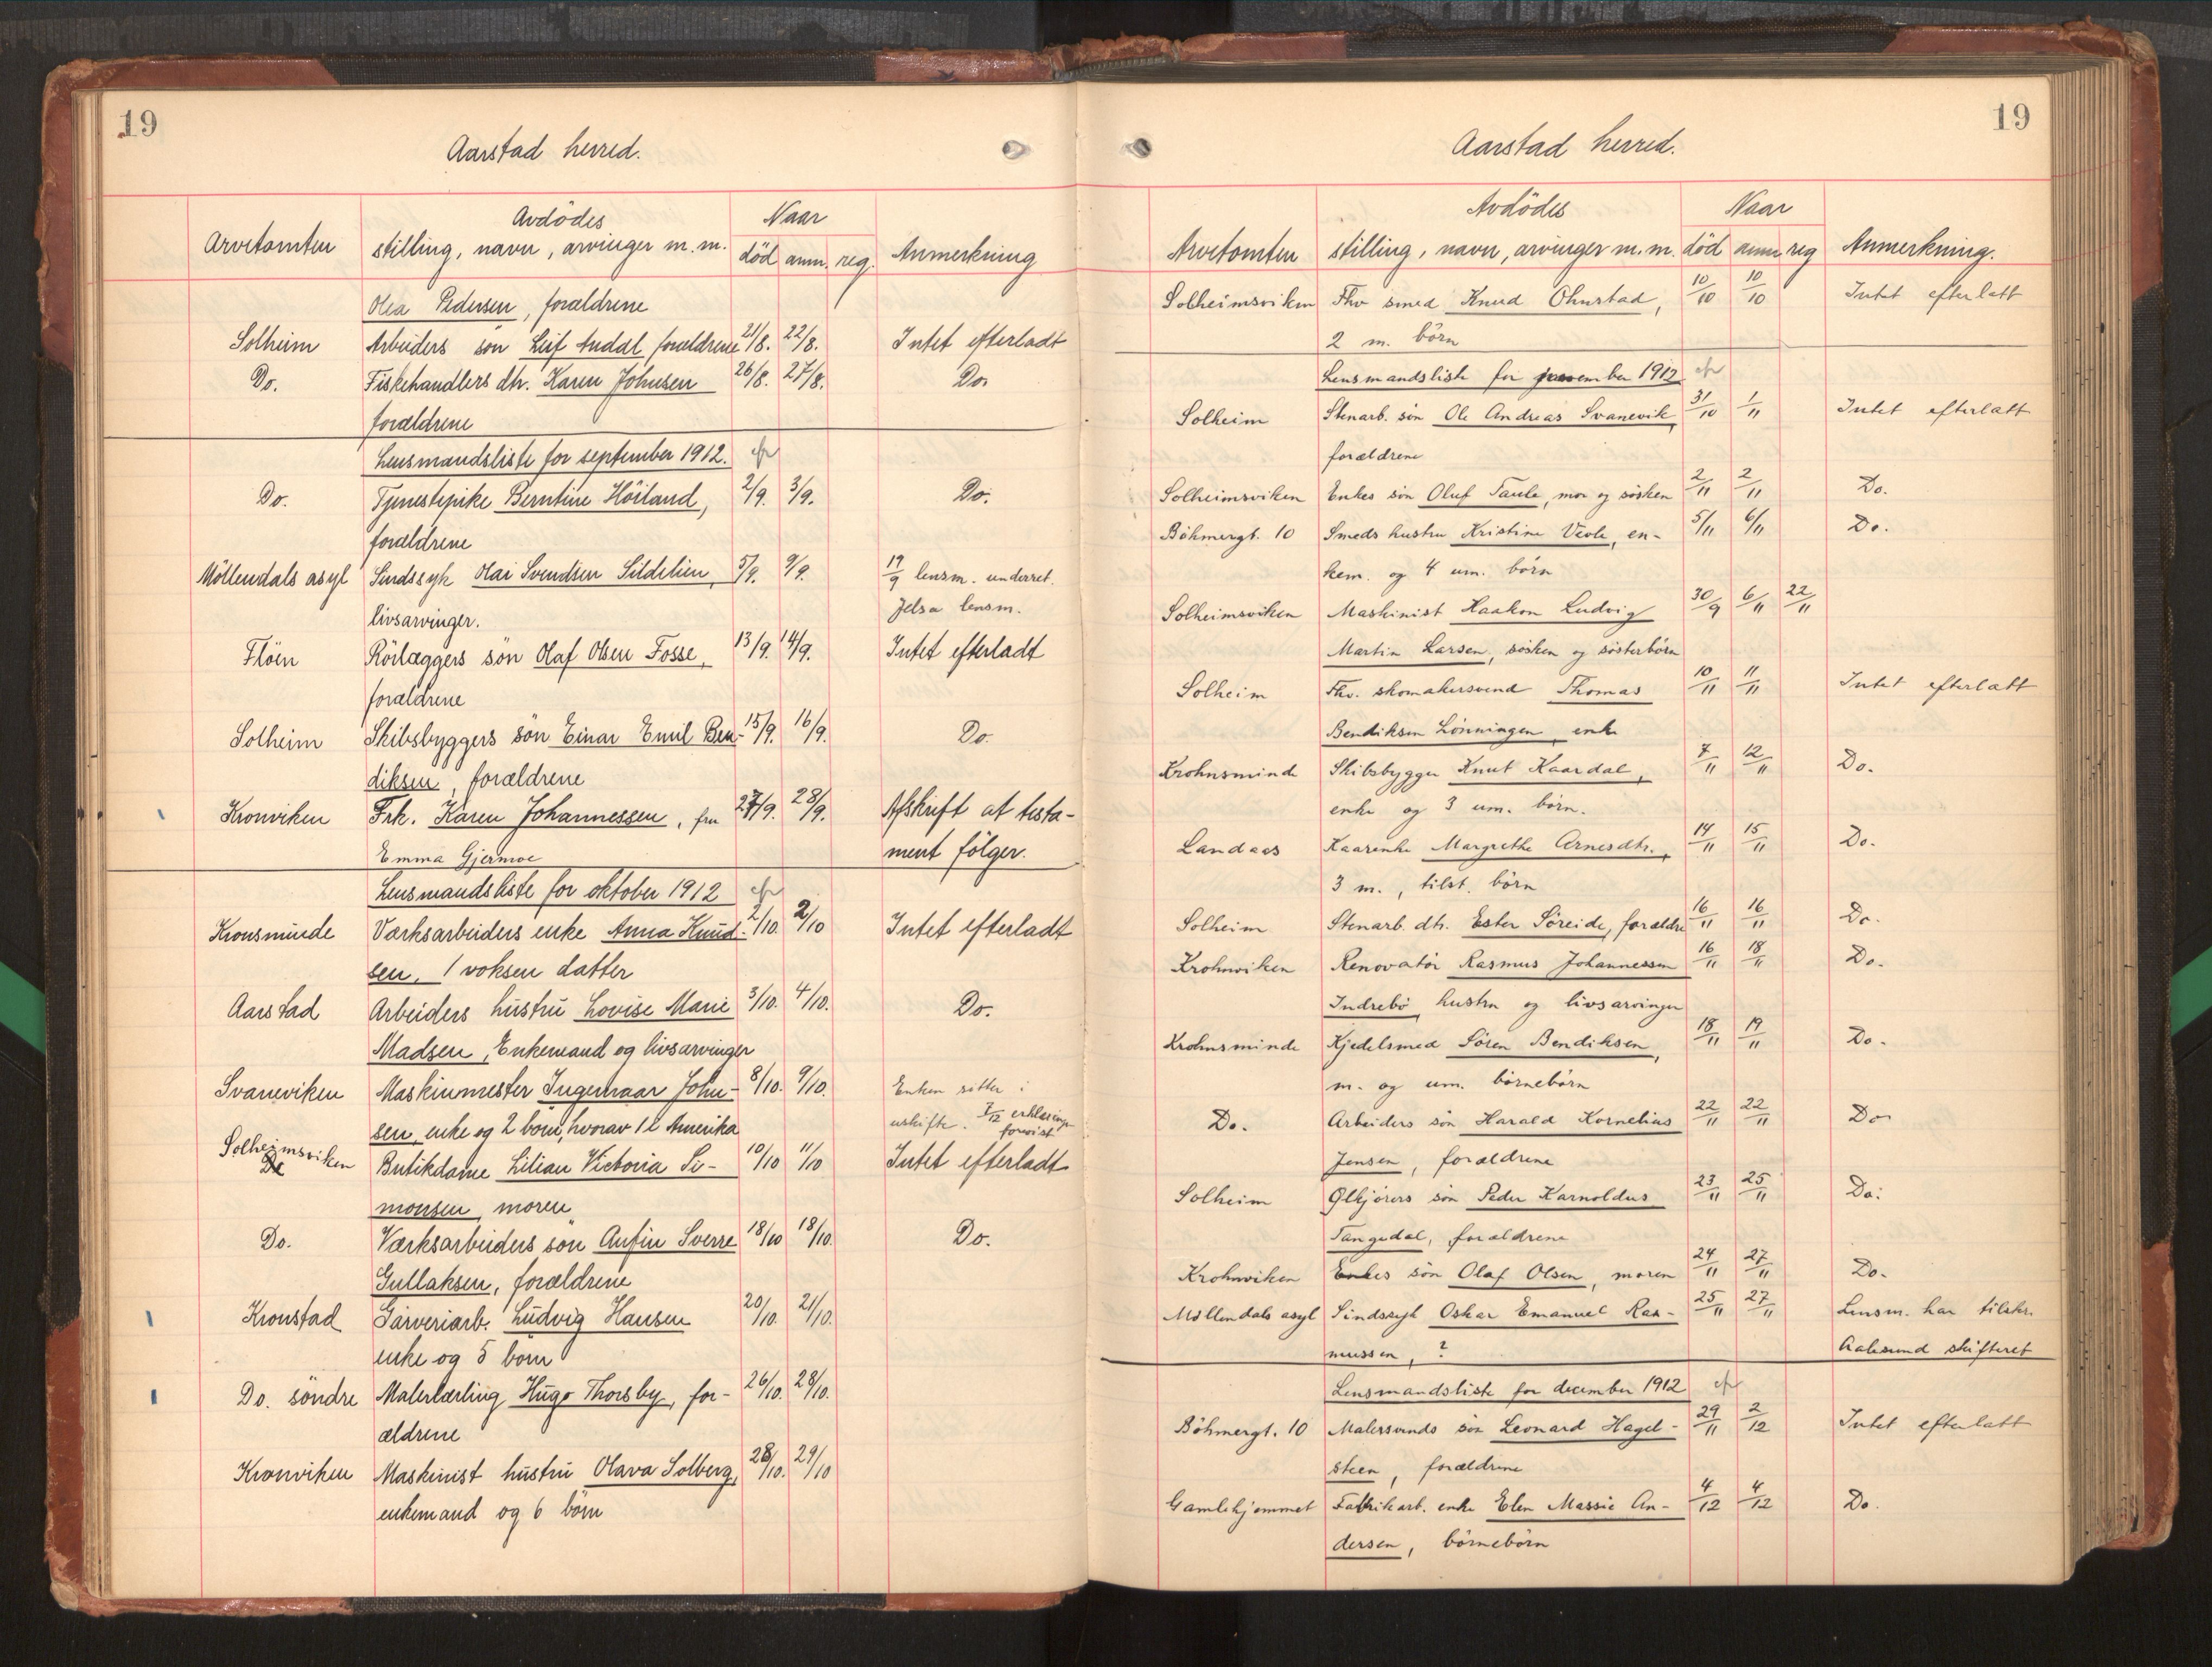 19
Aarstad herred.
Arvetomten
Avdödes
stilling, navn, arvinger m. m.
Naar
död anm. reg.
Anmerkning
Olea Pedersen, forældrene
Solheim Arbeiders sön Leif Andal forældrene 21/8. 22/8. Intet efterladt
Do. Fiskehandlers dtr. Karen Johnsen 26/8. 27/8. Do.
forældrene
Lensmandsliste for september 1912.
Do. Tjenestepike Berntine Höiland, 2/9. 3/9. Do.
forældrene
Möllendals asyl Sindssyk Olai Svendsen Sildelien, 5/9. 9/9. 19/9 lensm. underret.
livsarvinger. Jelsa lensm.
Flöen Rörlæggers sön Olaf Olsen Fosse, 13/9. 14/9. Intet efterladt
forældrene
Solheim Skibsbyggers sön Einar Emil Ben- 15/9. 16/9. Do.
diksen, forældrene
Kronviken Frk. Karen Johannessen, fru 27/9. 28/9. Afskrift at testa-
Emma Gjermoe ment fölger.
Lensmandsliste for oktober 1912
Kronsminde Værksarbeiders enke Anna Knud- 2/10. 2/10 Intet efterladt
sen, 1 voksen datter
Aarstad Arbeiders hustru Lovise Marie 3/10. 4/10. Do.
Madsen, Enkemand og livsarvinger
Svaneviken Maskinmester Ingemaar John- 8/10. 9/10. Enken sitter i
sen, enke og 2 börn, hvorav 1 i Amerika uskifte. 7/12 erklæring forevist
Solheimsviken Butikdame Lilian Victoria Si- 10/10 11/10 Intet efterladt
monsen, moren
Do. Værksarbeiders sön Anfin Sverre 18/10 18/10. Do.
Gullaksen, forældrene
Kronstad Garveriarb. Ludvig Hansen 20/10. 21/10.
enke og 5 börn
Do. söndre Malerlærling Hugo Thorsby, for- 26/10. 28/10.
ældrene
Kronviken Maskinist hustru Olava Solberg, 28/10. 29/10
enkemand og 6 börn
19
Aarstad herred.
Arvetomten
Avdödes
stilling, navn, arvinger m. m.
Naar
död anm reg
Anmerkning.
Solheimsviken Fhv smed Knud Ohnstad, 10/10 10/10 Intet efterlatt
2 m. börn
Lensmandsliste for november 1912
Solheim Stenarb. sön Ole Andreas Svanevik 31/10 1/11 Intet efterlatt
forældrene
Solheimsviken Enkes sön Oluf Taule, mor og søsken 2/11 2/11 Do.
Böhmergt. 10 Smeds hustru Kristine Veole, en- 5/11 6/11 Do.
kem. og 4 um. börn
Solheimsviken Maskinist Haakon Ludvig 30/9 6/11 22/11
Martin Larsen, søsken og søsterbörn
Solheim Fhv. skomakersvend Thomas 10/11 11/11 Intet efterlatt
Bendiksen Lönningen, enke
Krohnsminde Skibsbygger Knut Kaardal, 7/11 12/11 Do.
enke og 3 um. börn.
Landaas Kaarenke Margrethe Arnesdtr., 14/11 15/11 Do.
3 m., tilst. börn
Solheim Stenarb. dtr. Ester Söreide, forældre 16/11 16/11 Do.
Krohnviken Renovatör Rasmus Johannessen 16/11 18/11 Do.
Indrebö hustru og livsarvinger
Krohnsminde Kjedelsmed Sören Bendiksen, 18/11 19/11 Do.
m. og um. börnebörn
Do. Arbeiders sön Harald Kornelius 22/11 22/11 Do
Jensen, forældrene
Solheim Ølkjörers sön Peder Karnoldus 23/11 25/11 Do.
Tangedal, forældrene
Krohnviken Enkes sön Olaf Olsen, moren 24/11 27/11 Do.
Möllendals asyl Sindssyk Oskar Emanuel Ras- 25/11 27/11 Lensm. har tilskr.
mussen, ? Aalesund skifteret
Lensmandsliste for december 1912
Böhmergt. 10 Malersvends sön Leonard Hagel- 29/11 2/12 Intet efterlatt
steen, forældrene
Gamlehjemmet Fabrikarb. enke Elen Massie An- 4/12 4/12 Do.
dersen, börnebörn